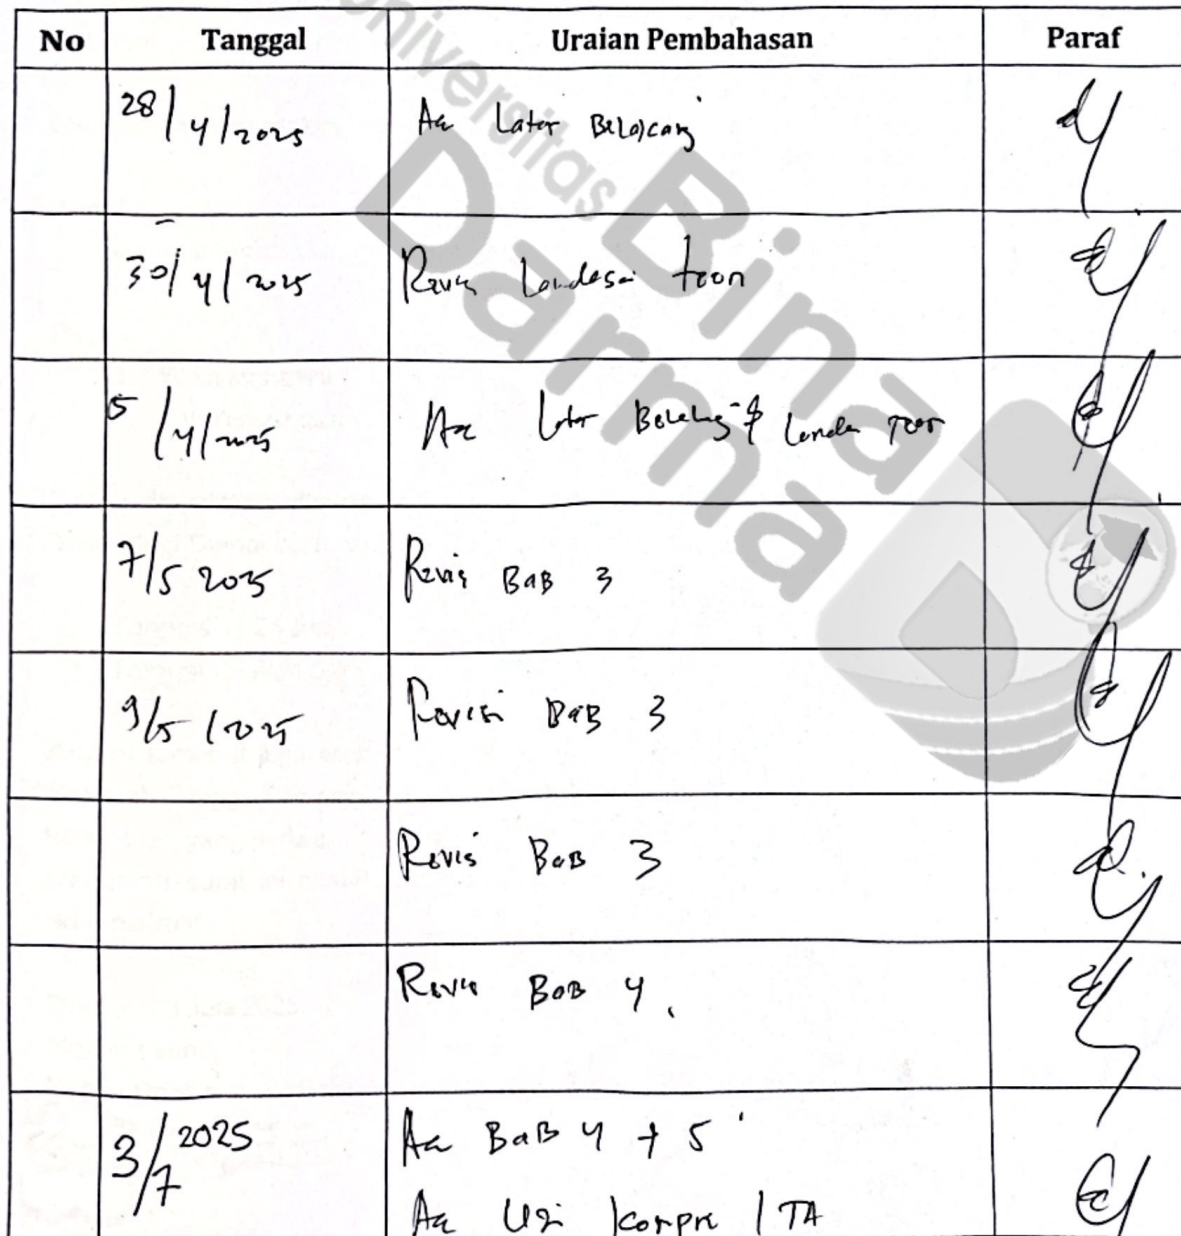 Universitas
Bina
Darma
No Tanggal Uraian Pembahasan Paraf
28/4/2025 Acc Latar Belakang
30/4/2025 Revisi Landasan teori
5/4/2025 Acc Latar Belakang & Landasan Teori
7/5 2025 Revisi BAB 3
9/5/2025 Revisi BAB 3
Revisi BAB 3
Revisi BAB 4
3/7 2025 Acc BAB 4 + 5
Acc Uji /TA